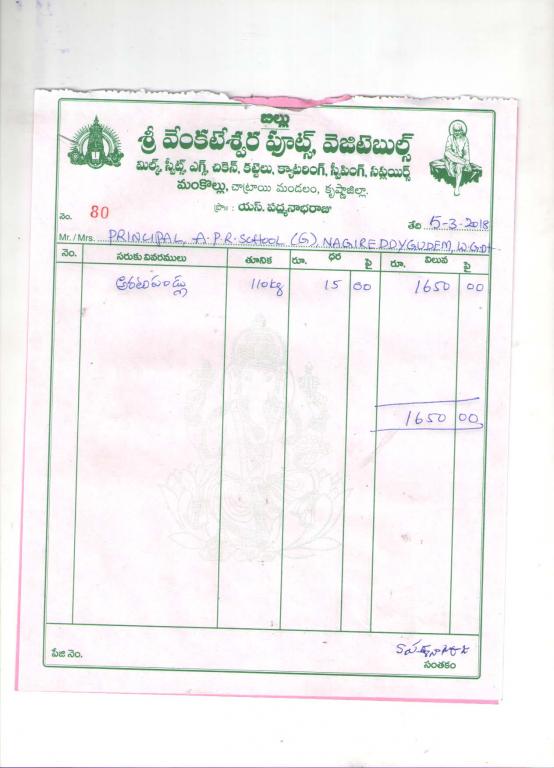 బిల్లు
శ్రీ వేంకటేశ్వర ఫ్రూట్స్, వెజిటెబుల్స్
మిల్క్, స్వీట్స్, ఎగ్స్, చికెన్, కట్టెలు, క్యాటరింగ్, స్వీపింగ్, సప్లయిర్స్
మంకొల్లు, చాట్రాయి మండలం, కృష్ణాజిల్లా.
ప్రొ: యస్. పద్మనాభరాజు
నెం. 80
తేది 5-3-2018
Mr. / Mrs. PRINCIPAL, A.P.R. SCHOOL (G), NAGIREDDYGUDEM, W.G.Dt
నెం. సరుకు వివరములు తూనిక రూ. ధర పై రూ. విలువ పై
అరటిపండ్లు 110kg 15 00 1650 00
1650 00
పేజి నెం.
సంతకం